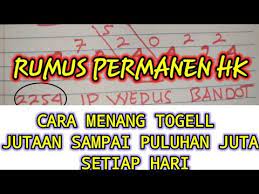 RUMUS PERMANEN HK
2254 JP WEDUS BANDOT
CARA MENANG TOGELL
JUTAAN SAMPAI PULUHAN JUTA
SETIAP HARI